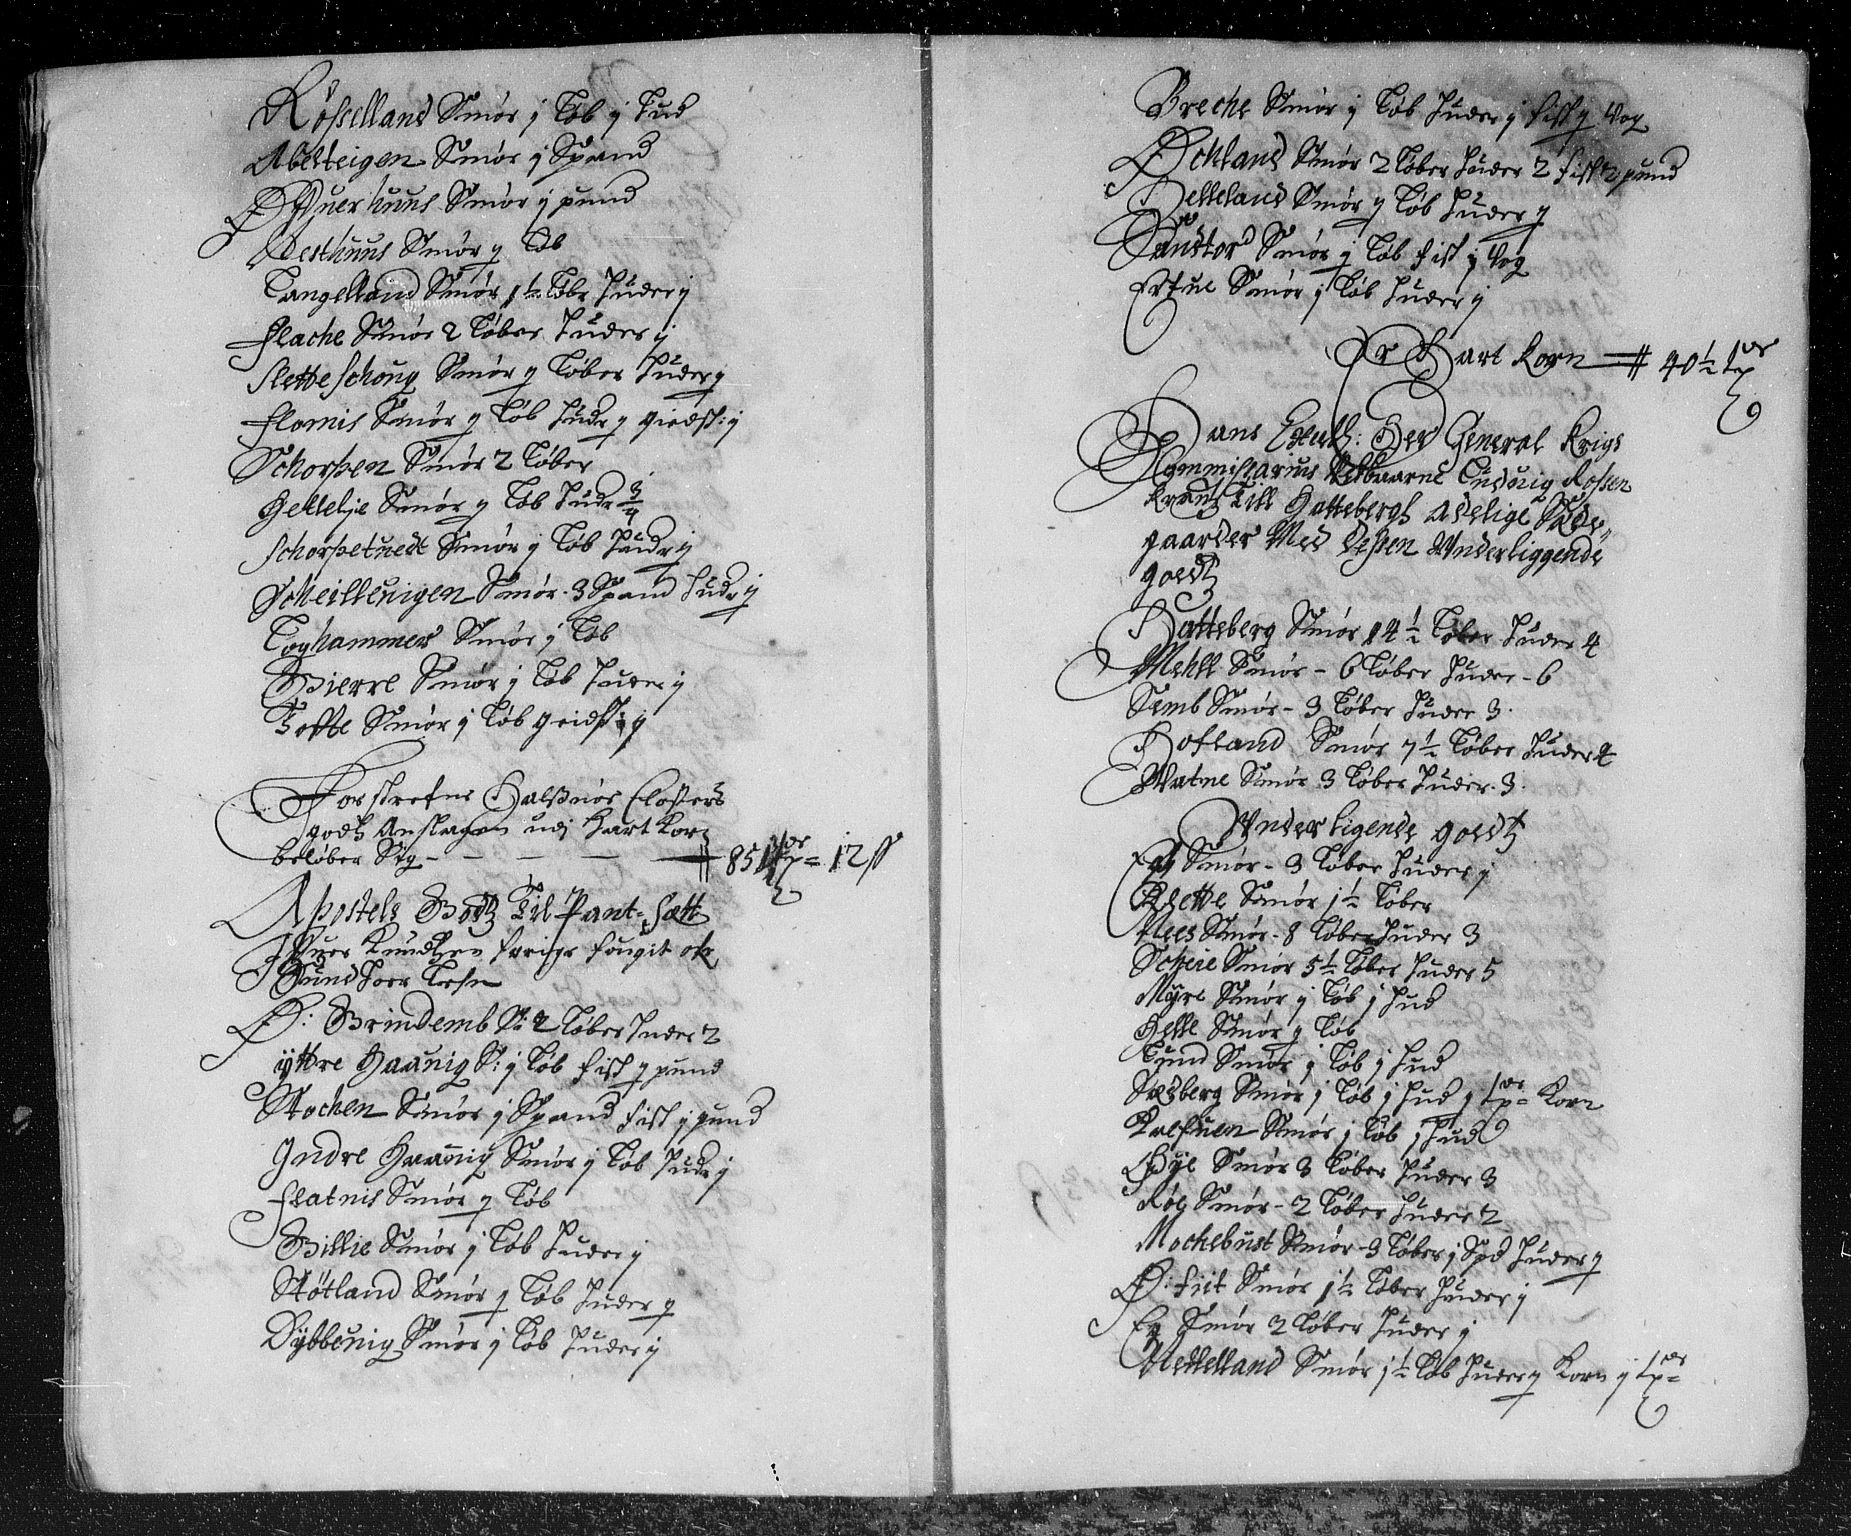 Røsselland Smør j Løb j Hud
Abelteigen Smør j Spand
Øffuerhuus Smør j pund
Vesthuus Smør ½ Løb
Tangelland Smør 1½ Løbr Huder j
Flache Smør 2 Løber Huder j
Sletteschoug Smør ½ Løber Huder ½
Flornis Smør ½ Løb Hudr ½ giedsk: j
Schorpen Smør 2 Løber
Hettelje Smør ½ Løb Hudr ¾
Schorpetuedt Smør j Løb Hudr ½
Scheillenigen Smør - 3 Spand Hudr ½
Toghammer Smør j Løb
Bierre Smør j Løb Huder j
Tofte Smør j Løb geidsk: j
Forskrefne Halsnøe Closters
godtz Anslagen udj Hart Korn
beløber Sig - - - - - 851 tr = 12 ß
Apostels Godtz Til Pant-satt
Iffuer Knudtzen forige fougit ofr
Sundhoer Lehn
Ø: Grindemb S: 2 Løber Huder 2
yttre Haauig S: j Løb fisk ½ pund
Stochen Smør j Spand fisk j pund
Indre Haauig Smør j Løb Hudr j
Flatnis Smør ½ Løb
Billie Smør j Løb Huder j
Støtland Smør ½ Løb Huder ½
Dybbeuig Smør j Løb Huder j
Breche Smør j Løb Huder j fisk ½ Vog
Øchland Smør 2 Løber Huder 2 fisk 2 pund
Helleland Smør ½ Løb Huder ½
Sandtor Smør ½ Løb fisk ½ Vog
Erfue Smør j Løb Huder j
Er Hart Korn 40½ tr
Hans Excell: Her General Krigs
Commissarius Velbaarne Luduig Rossen
krantz Till Hattebergh Adelige Sæde-
gaarder Med dessen Underliggende
goedtz
Hatteberg Smør 14½ Løber Huder 4
Mehll Smør - 6 Løber Huder - 6
Semb Smør - 3 Løber Huder 3.
Hofland Smør 7½ Løber Huder 4
Watne Smør 3 Løber Huder. 3.
Underligende goedtz
Eg Smør - 3 Løber Huder j
Slette Smør 1½ Løber
Nees Smør - 8 Løber Huder 3
Scheie Smør 5½ Løber Huder 5
Myre Smør j Løb j Hud
Helle Smør ½ Løb
Lund Smør j Løb j Hud
Sæberg Smør j Løb j Hud j tr = Korn
Kalfuen Smør j Løb j Hud
Øye Smør 3 Løber Huder 3
Røe Smør - 2 Løber Huder 2
Mochebust Smør - 3 Løber j Spd Huder ½
Ø: Fiit Smør 1½ Løber Huder j
Eg Smør 2 Løber Huder j
Mehlland Smør 1½ Løb Huder ½ Korn j tr =